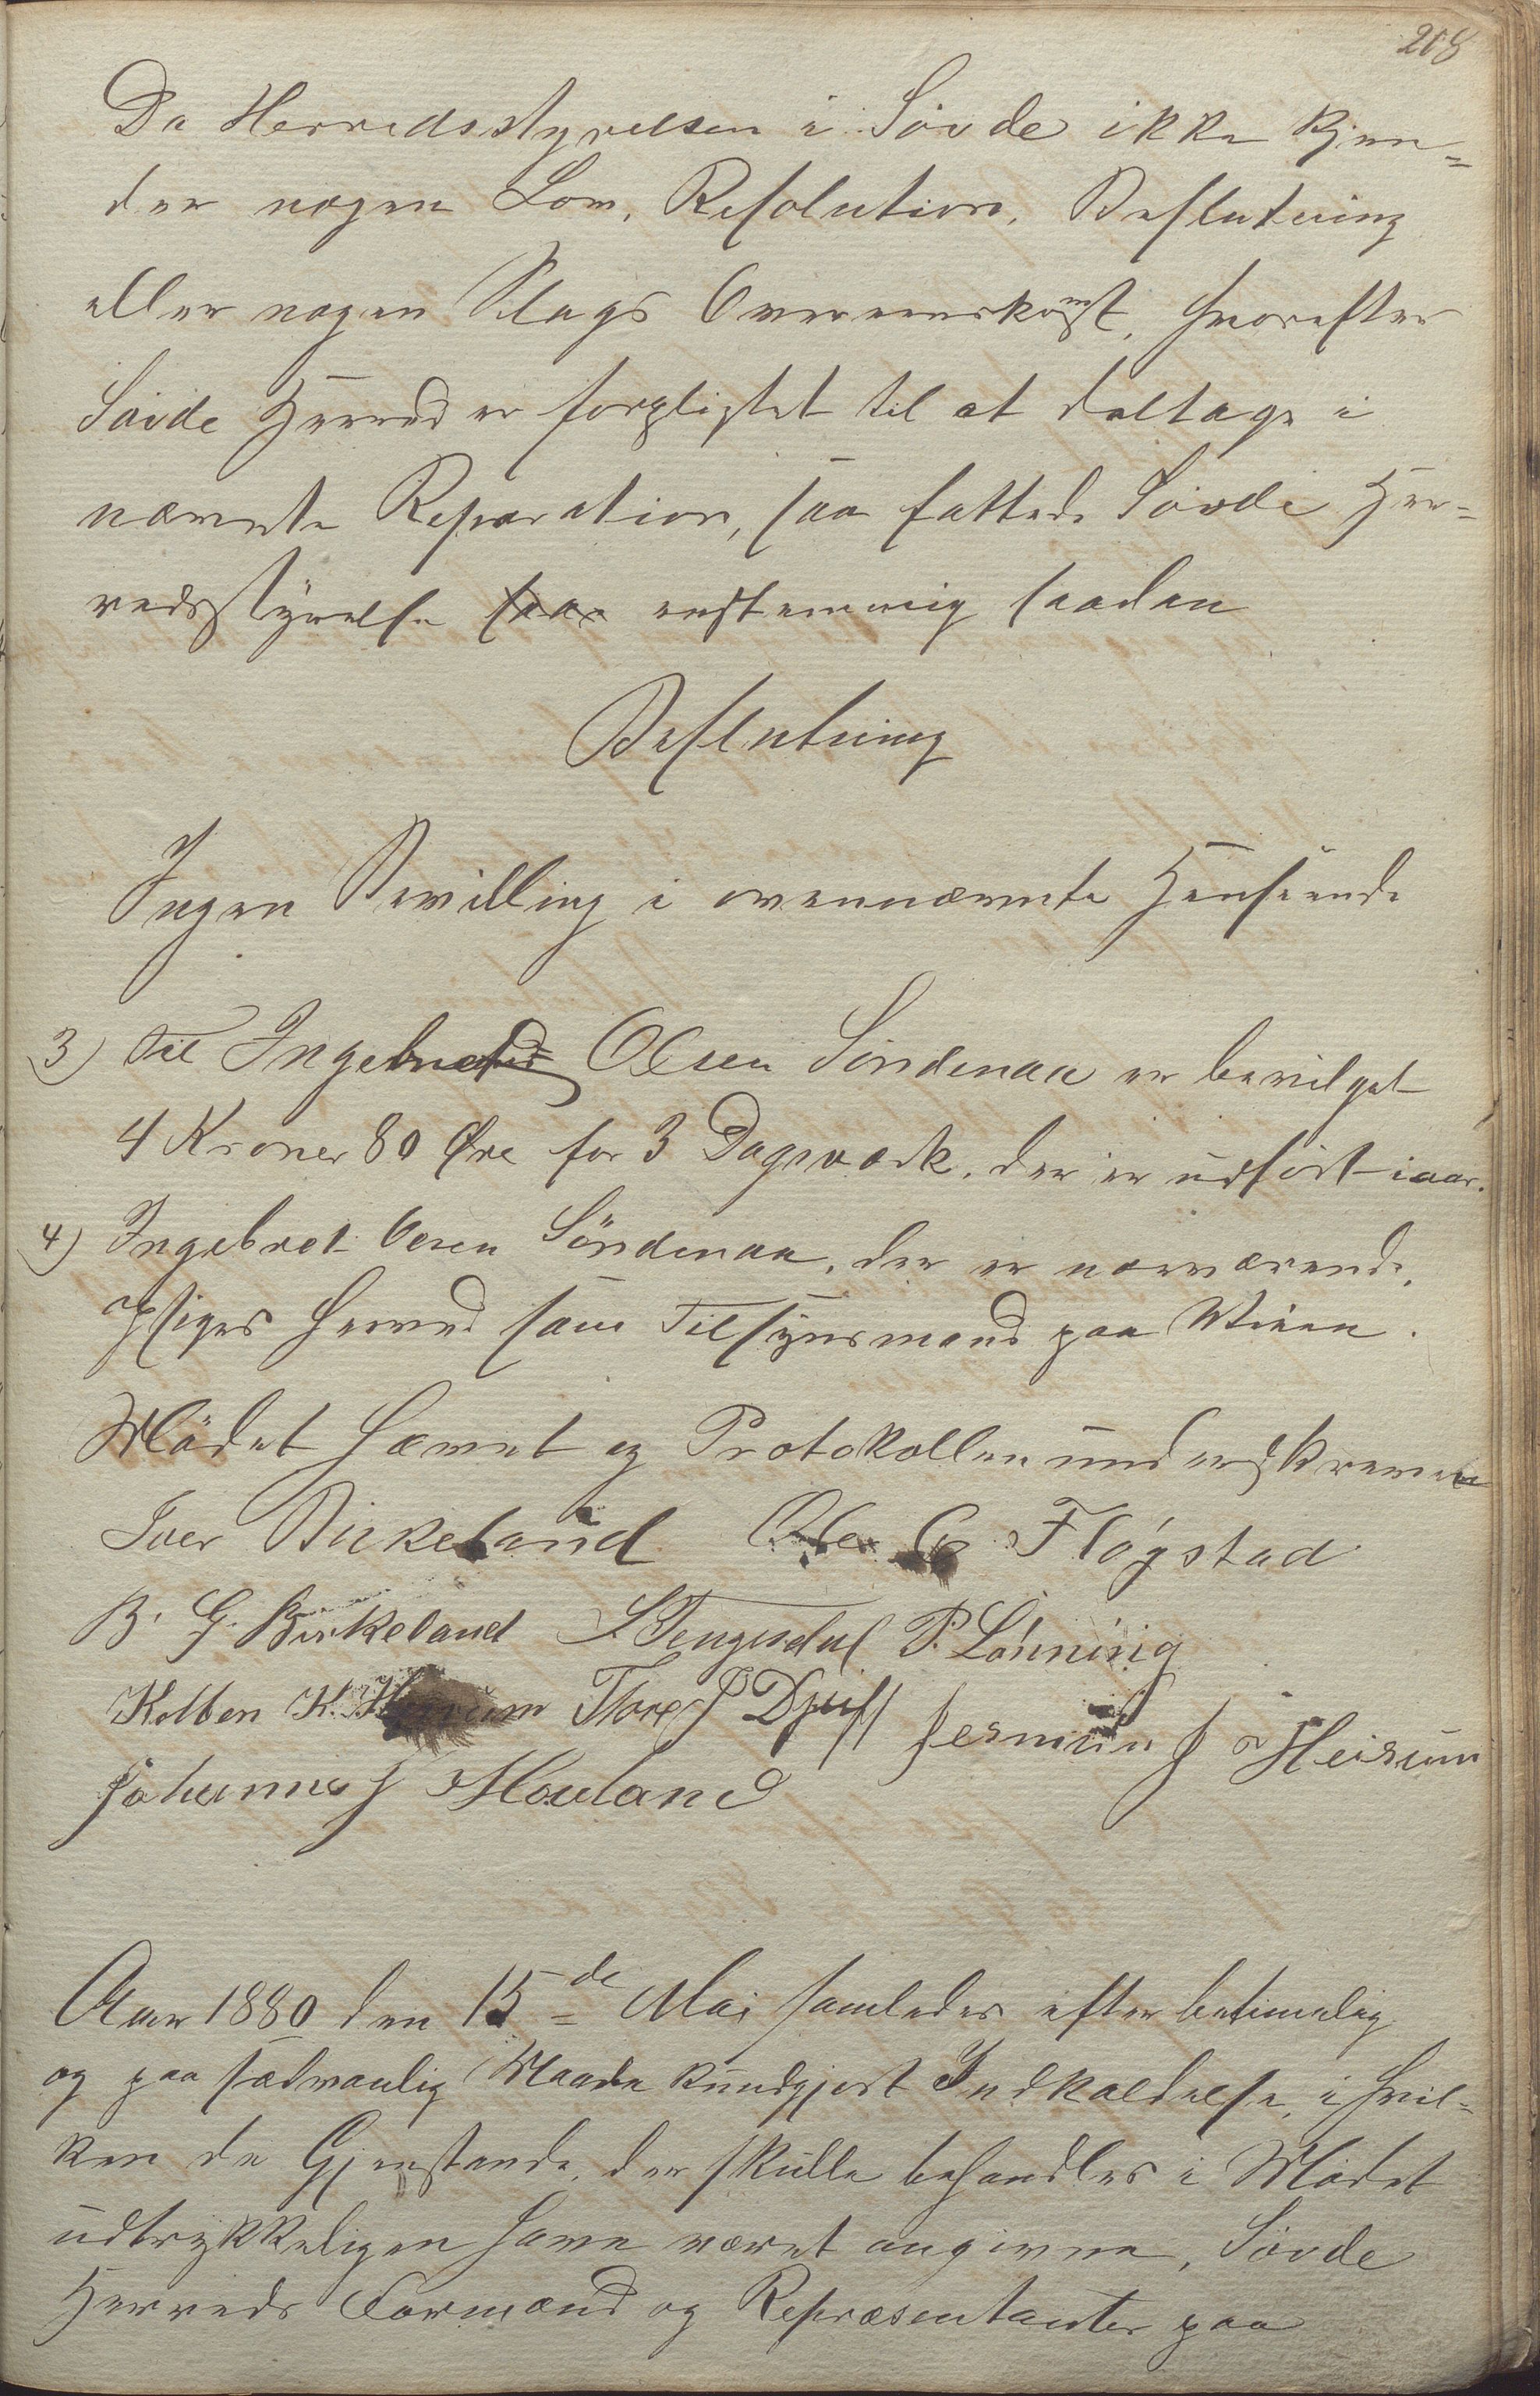 208
Da Herredsstyrelsen i Søvde ikke kjen=
der nogen Lov, Resolution, Beslutning
eller nogen Slags Overenskomst, hvorefter
Søvde Herred er forpligtet til at deltage i
nævnte Reparation, saa fattede Søvde Her=
redsstyrelse saa enstemmig saadan
Beslutning
Ingen Bevilling i ovennævnte Henseende
3) Til Ingebret Olsen Søndenaa er bevilget
4 Kroner 80 Øre for 3 Dagsværk, der er udført iaar.
4) Ingebret Olsen Söndenaa, der er nærværende,
opsiges herved som Tilsynsmand paa Veien.
Mödet hævet og Protokollen underskreven
Iver Birkeland Ole O Fløgstad
B. G. Birkeland S. Tengesdal P. Lønning
Kolben K. Tore J Djuss Jesmun J Heirum
Johannes J Hovland
Aar 1880 den 15de Mai samledes efter betimelig
og paa sædvanlig Maade kundgjort Indkaldelse, i hvil=
ken de Gjenstande, der skulle behandles i Mødet
udtrykkeligen have været angivne, Søvde
Herreds Formænd og Repræsentanter paa